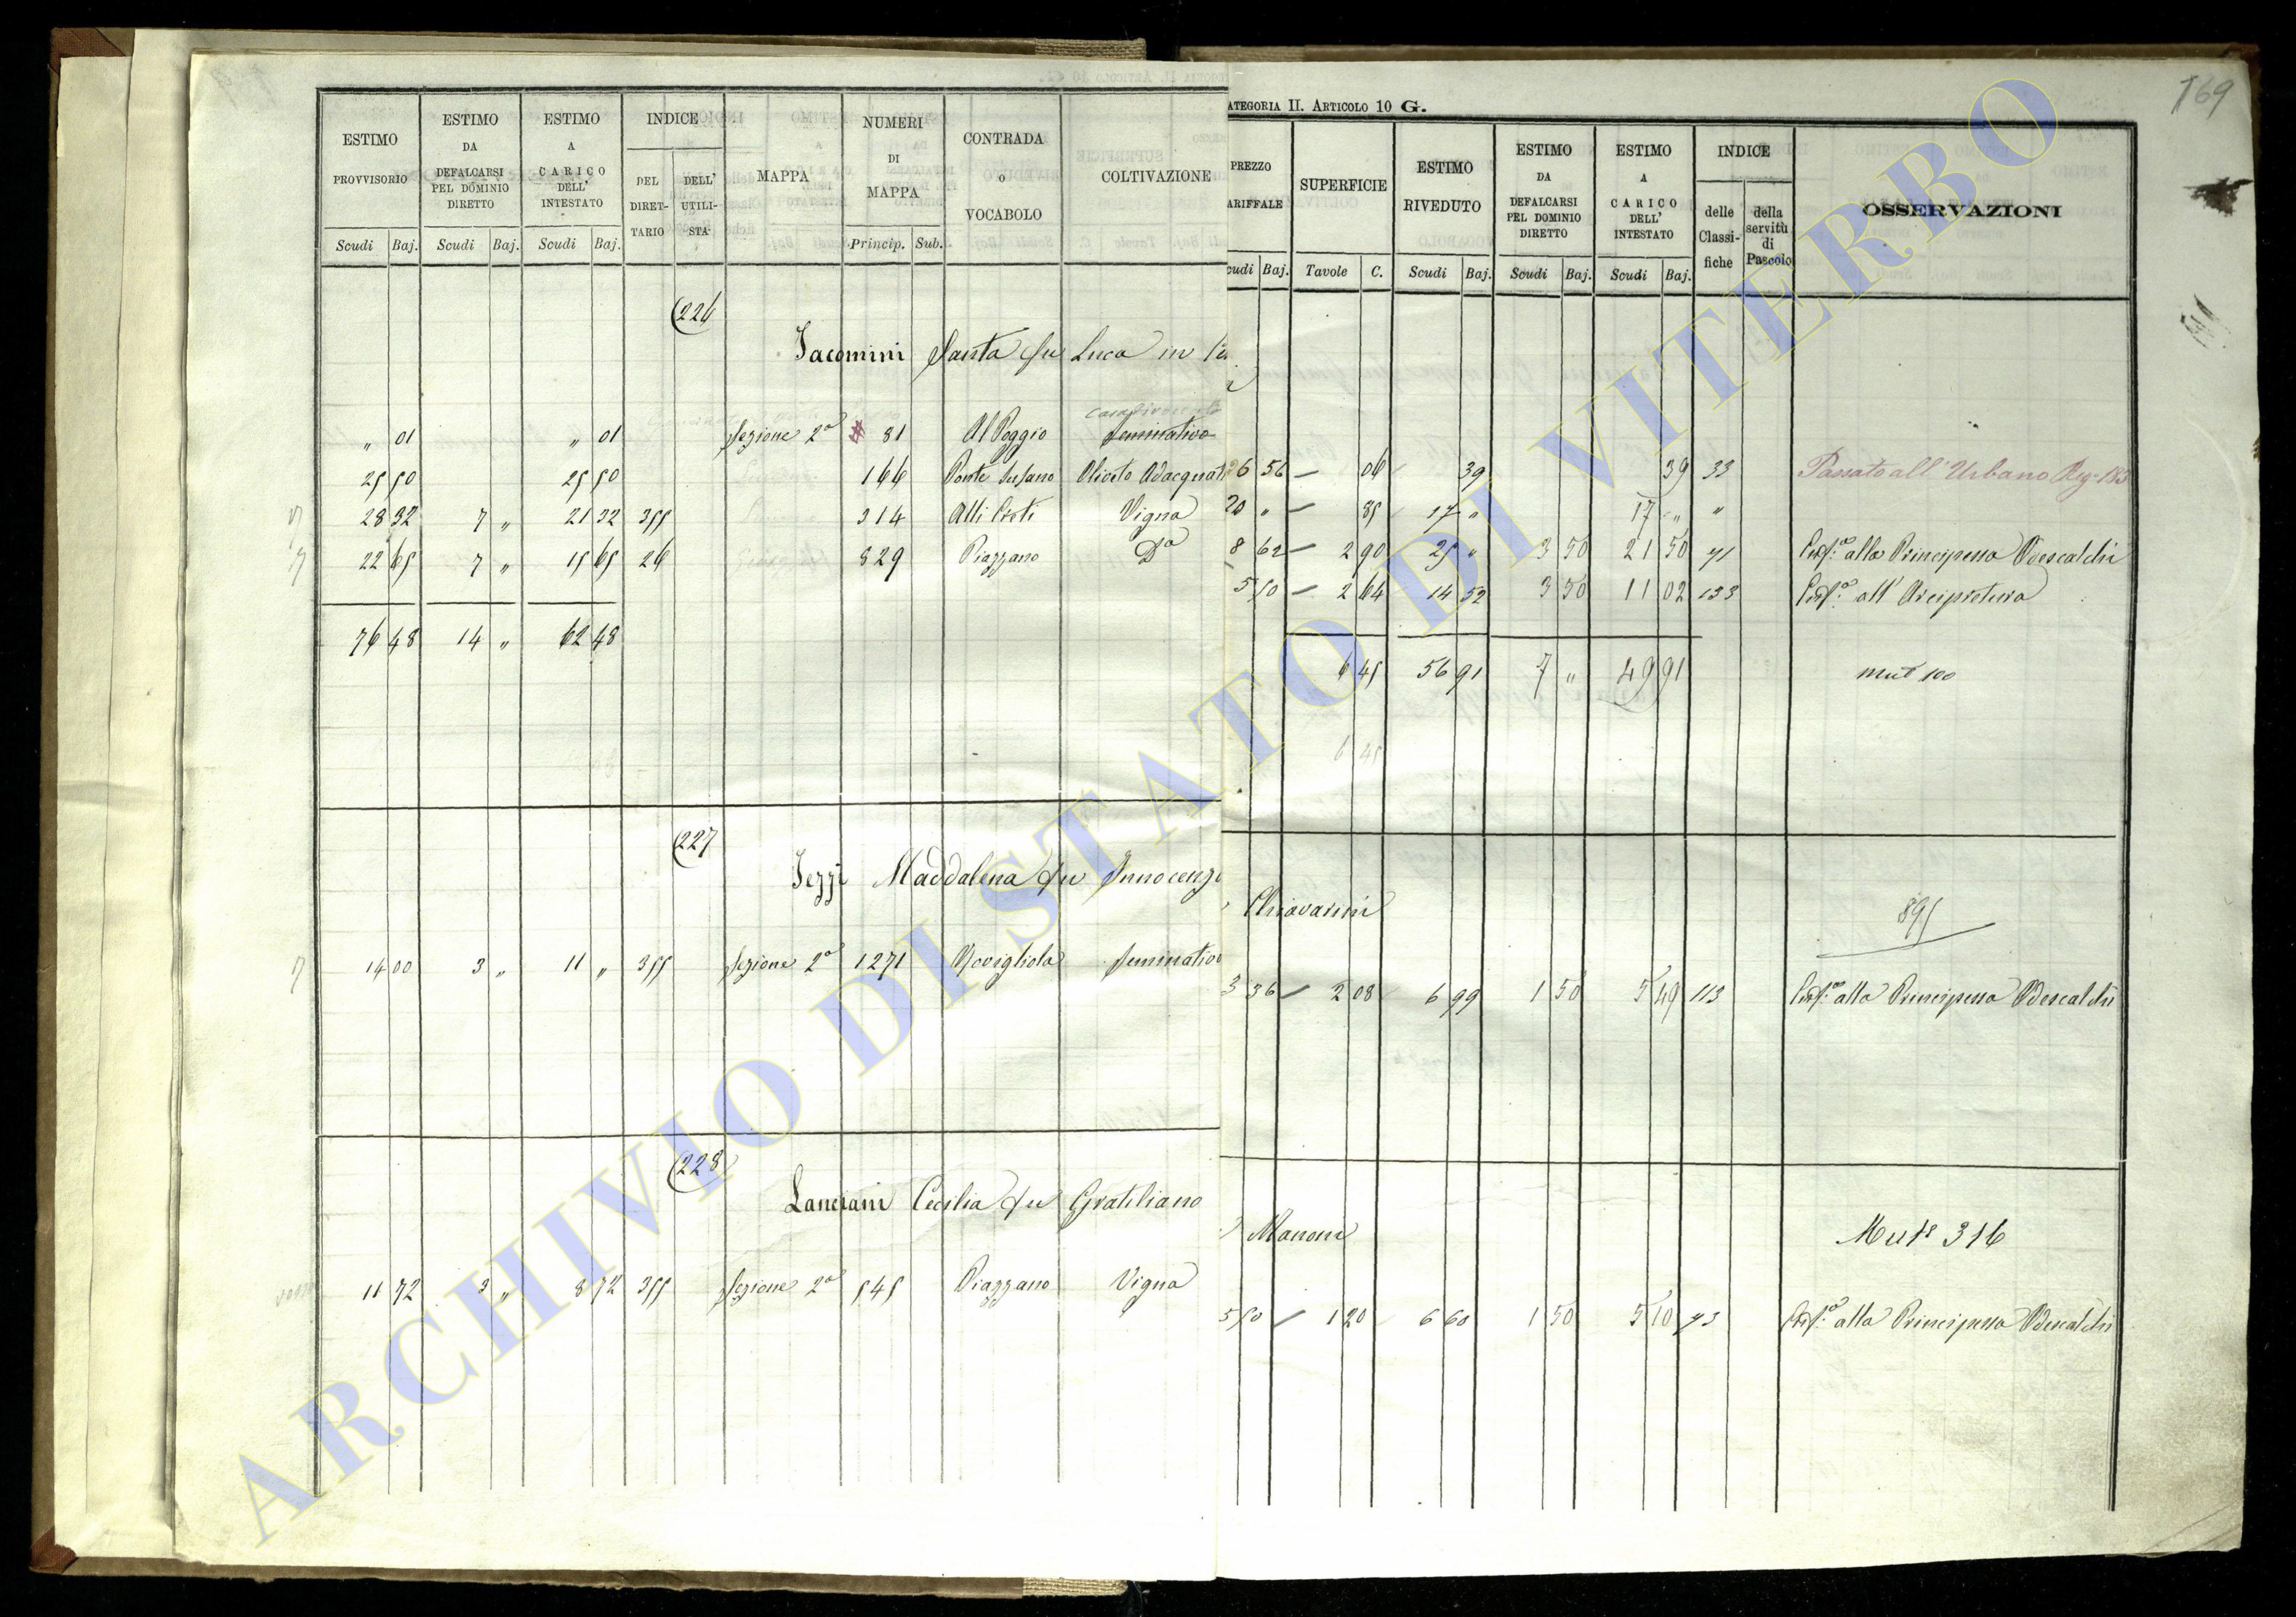 169
ATEGORIA II. ARTICOLO 10 G.
ESTIMO PROVVISORIO Scudi Baj.
ESTIMO DA DEFALCARSI PEL DOMINIO DIRETTO Scudi Baj.
ESTIMO A CARICO DELL' INTESTATO Scudi Baj.
INDICE DEL DIRET-TARIO DELL' UTILI-STA
MAPPA
NUMERI DI MAPPA Princip. Sub.
CONTRADA O VOCABOLO
COLTIVAZIONE
PREZZO ARIFFALE cudi Baj.
SUPERFICIE Tavole C.
ESTIMO RIVEDUTO Scudi Baj.
ESTIMO DA DEFALCARSI PEL DOMINIO DIRETTO Scudi Baj.
ESTIMO A CARICO DELL' INTESTATO Scudi Baj.
INDICE delle Classi-fiche della servitù di Pascolo
OSSERVAZIONI
226
Jacomini Santa fu Luca in
" 01 " 01 Sezione 2a 81 Al Poggio Seminativo
25 50 25 50 166 Ponte Susano Oliveto Adacquat
28 32 7 " 21 32 355 314 Alli Orti Vigna
22 65 7 " 15 65 26 829 Piazzano Da
76 48 14 " 62 48
6 56 06 39 39 33 Passato all' Urbano Reg. 183
20 " 85 17 " 17 " "
8 62 2 90 25 " 3 50 21 50 71 alla Principessa Odescalchi
5 50 2 64 14 52 3 50 11 02 133 all' Arcipretura
6 45 56 91 7 " 49 91 mut 100
6 45
227
Jezzi Maddalena fu Innocenzo
Chiavarini
895
14 00 3 " 11 " 355 Sezione 2a 1271 Rovigliola Seminativo
3 36 2 08 6 99 1 50 5 49 113 alla Principessa Odescalchi
228
Lanciani Cecilia fu Gratiliano
Manoni
Muta 316
11 72 3 " 8 72 355 Sezione 2a 545 Piazzano Vigna
5 50 1 20 6 60 1 50 5 10 73 alla Principessa Odescalchi
ARCHIVIO DI STATO DI VITERBO